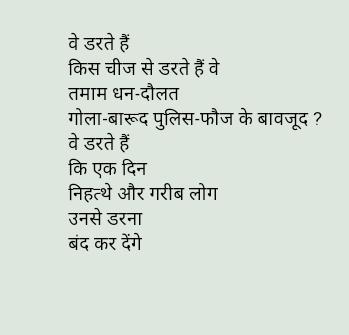 वे डरते हैं
किस चीज से डरते हैं वे
तमाम धन-दौलत
गोला-बारूद पुलिस-फौज के बावजूद ?
वे डरते हैं
कि एक दिन
निहत्थे और गरीब लोग
उनसे डरना
बंद कर देंगे